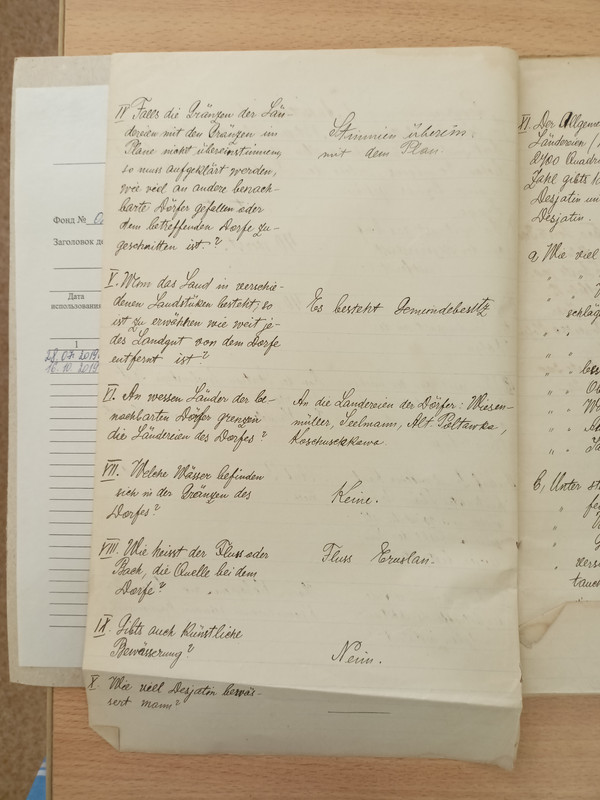 IV Falls die Gränzen der Län-
dereien mit den Gränzen im
Plane nicht übereinstimmen,
so muss aufgeklärt werden,
wie viel an andere benach-
barte Dörfer gefallen oder
dem betreffenden Dorfe zu-
geschnitten ist.?
Stimmen überein,
mit dem Plan
V. Wenn das Land in verschie-
denen Landstüken besteht, so
ist zu erwähnen wie weit je-
des Landgut von dem Dorfe
entfernt ist?
Es besteht Gemeindebesitz
VI. An wessen Länder der be-
nachbarten Dörfer grenzen
die Ländereien des Dorfes?
An die Landereien der Dörfer: Wiesen-
müller, Seelmann, Alt. Poltawka,
VII. Welche Wässer befinden
sich in der Gränzen des
Dorfes?
Keine.
VIII. Wie heisst der Fluss oder
Bach, die Quelle bei dem
Dorfe?
Fluss Eruslan.
IX. Gibts auch Künstliche
Bewässerung?
Nein.
X. Wie viell Desjatin bewäs-
sert mann?
XI. Der Allgeme
Ländereien
2400 Quadra
Zahl gibts
Desjatin un
Desjatin.
a, Wie viel
schläg
b, Unter st
tauch
Фонд №
Заголовок де
Дата
использования
1
28.07.2019
16.10.2019